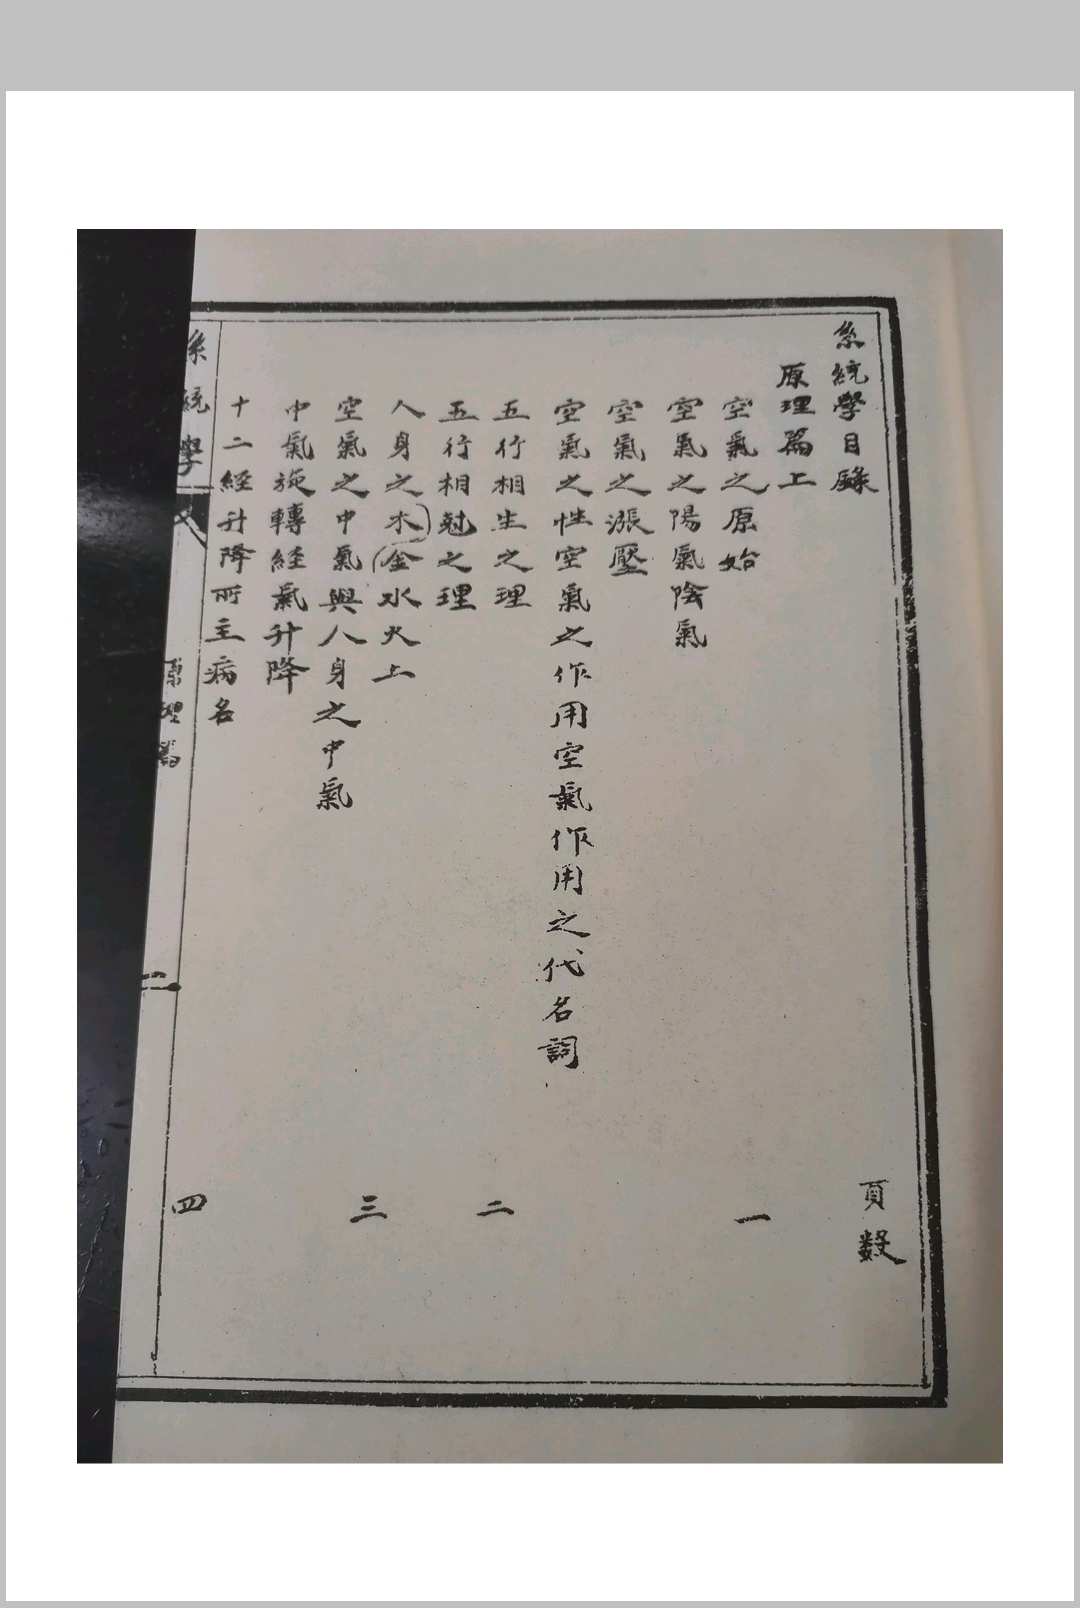 系統學目錄
頁數
原理篇上
空氣之原始
一
空氣之陽氣陰氣
空氣之漲壓
空氣之性空氣之作用空氣作用之代名詞
五行相生之理
二
五行相尅之理
人身之木金水火土
空氣之中氣與人身之中氣
三
中氣旋轉經氣升降
十二經升降所主病名
四
系統學
原理篇
二